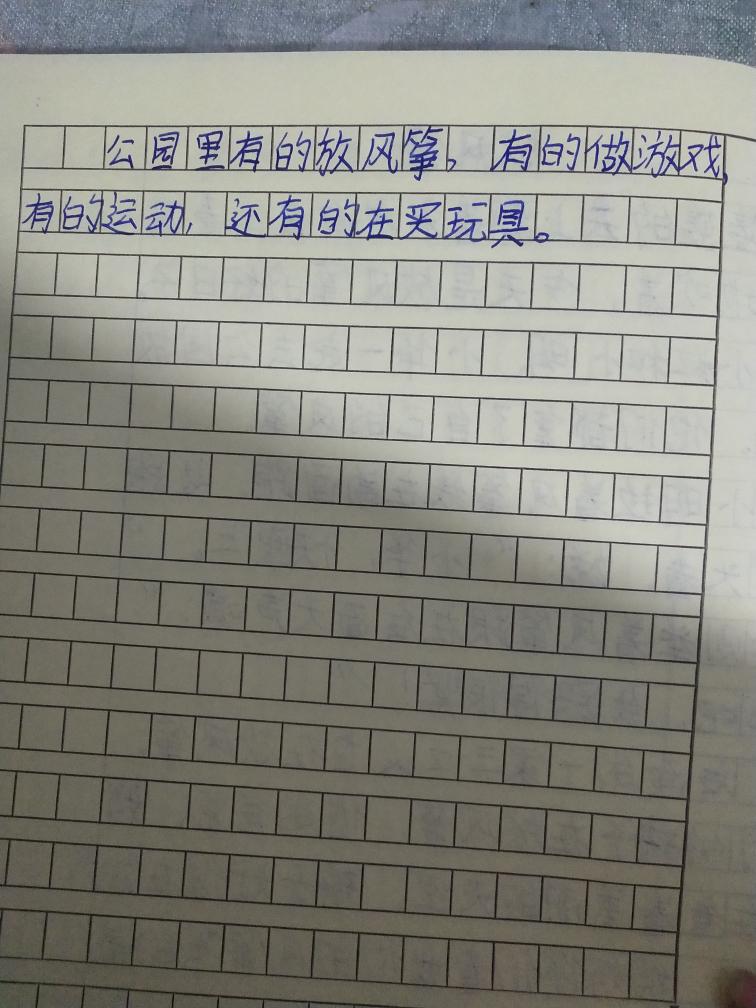 公园里有的放风筝，有的做游戏，
有的运动，还有的在买玩具。